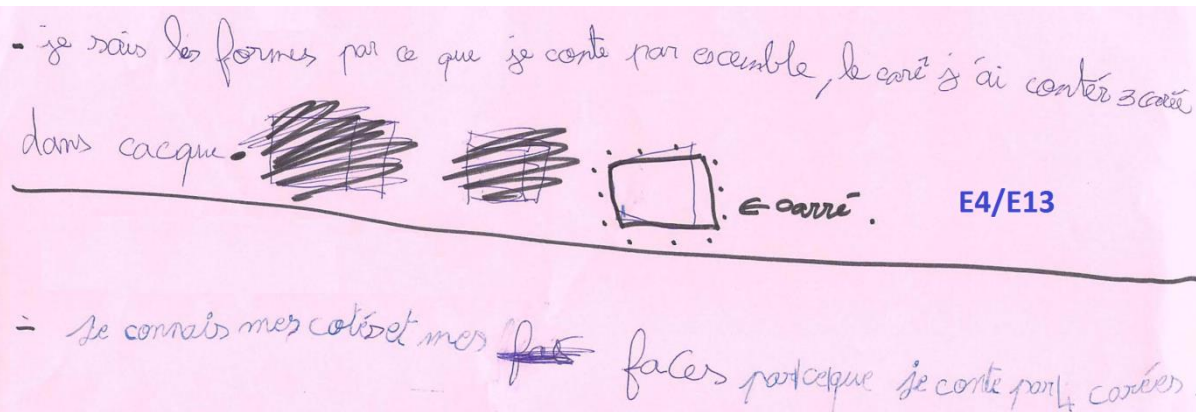 - je sais les formes par ce que je conte par escemble, le carè j'ai contér 3 carée
dans cacque.
← carré.
E4/E13
- Je connais mes cotés et mes faces parceque je conte par 4 carées